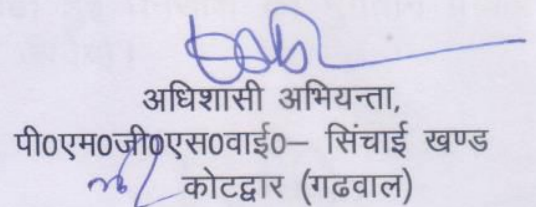 अधिशासी अभियन्ता,
पी0एम0जी0एस0वाई0– सिंचाई खण्ड
कोटद्वार (गढवाल)